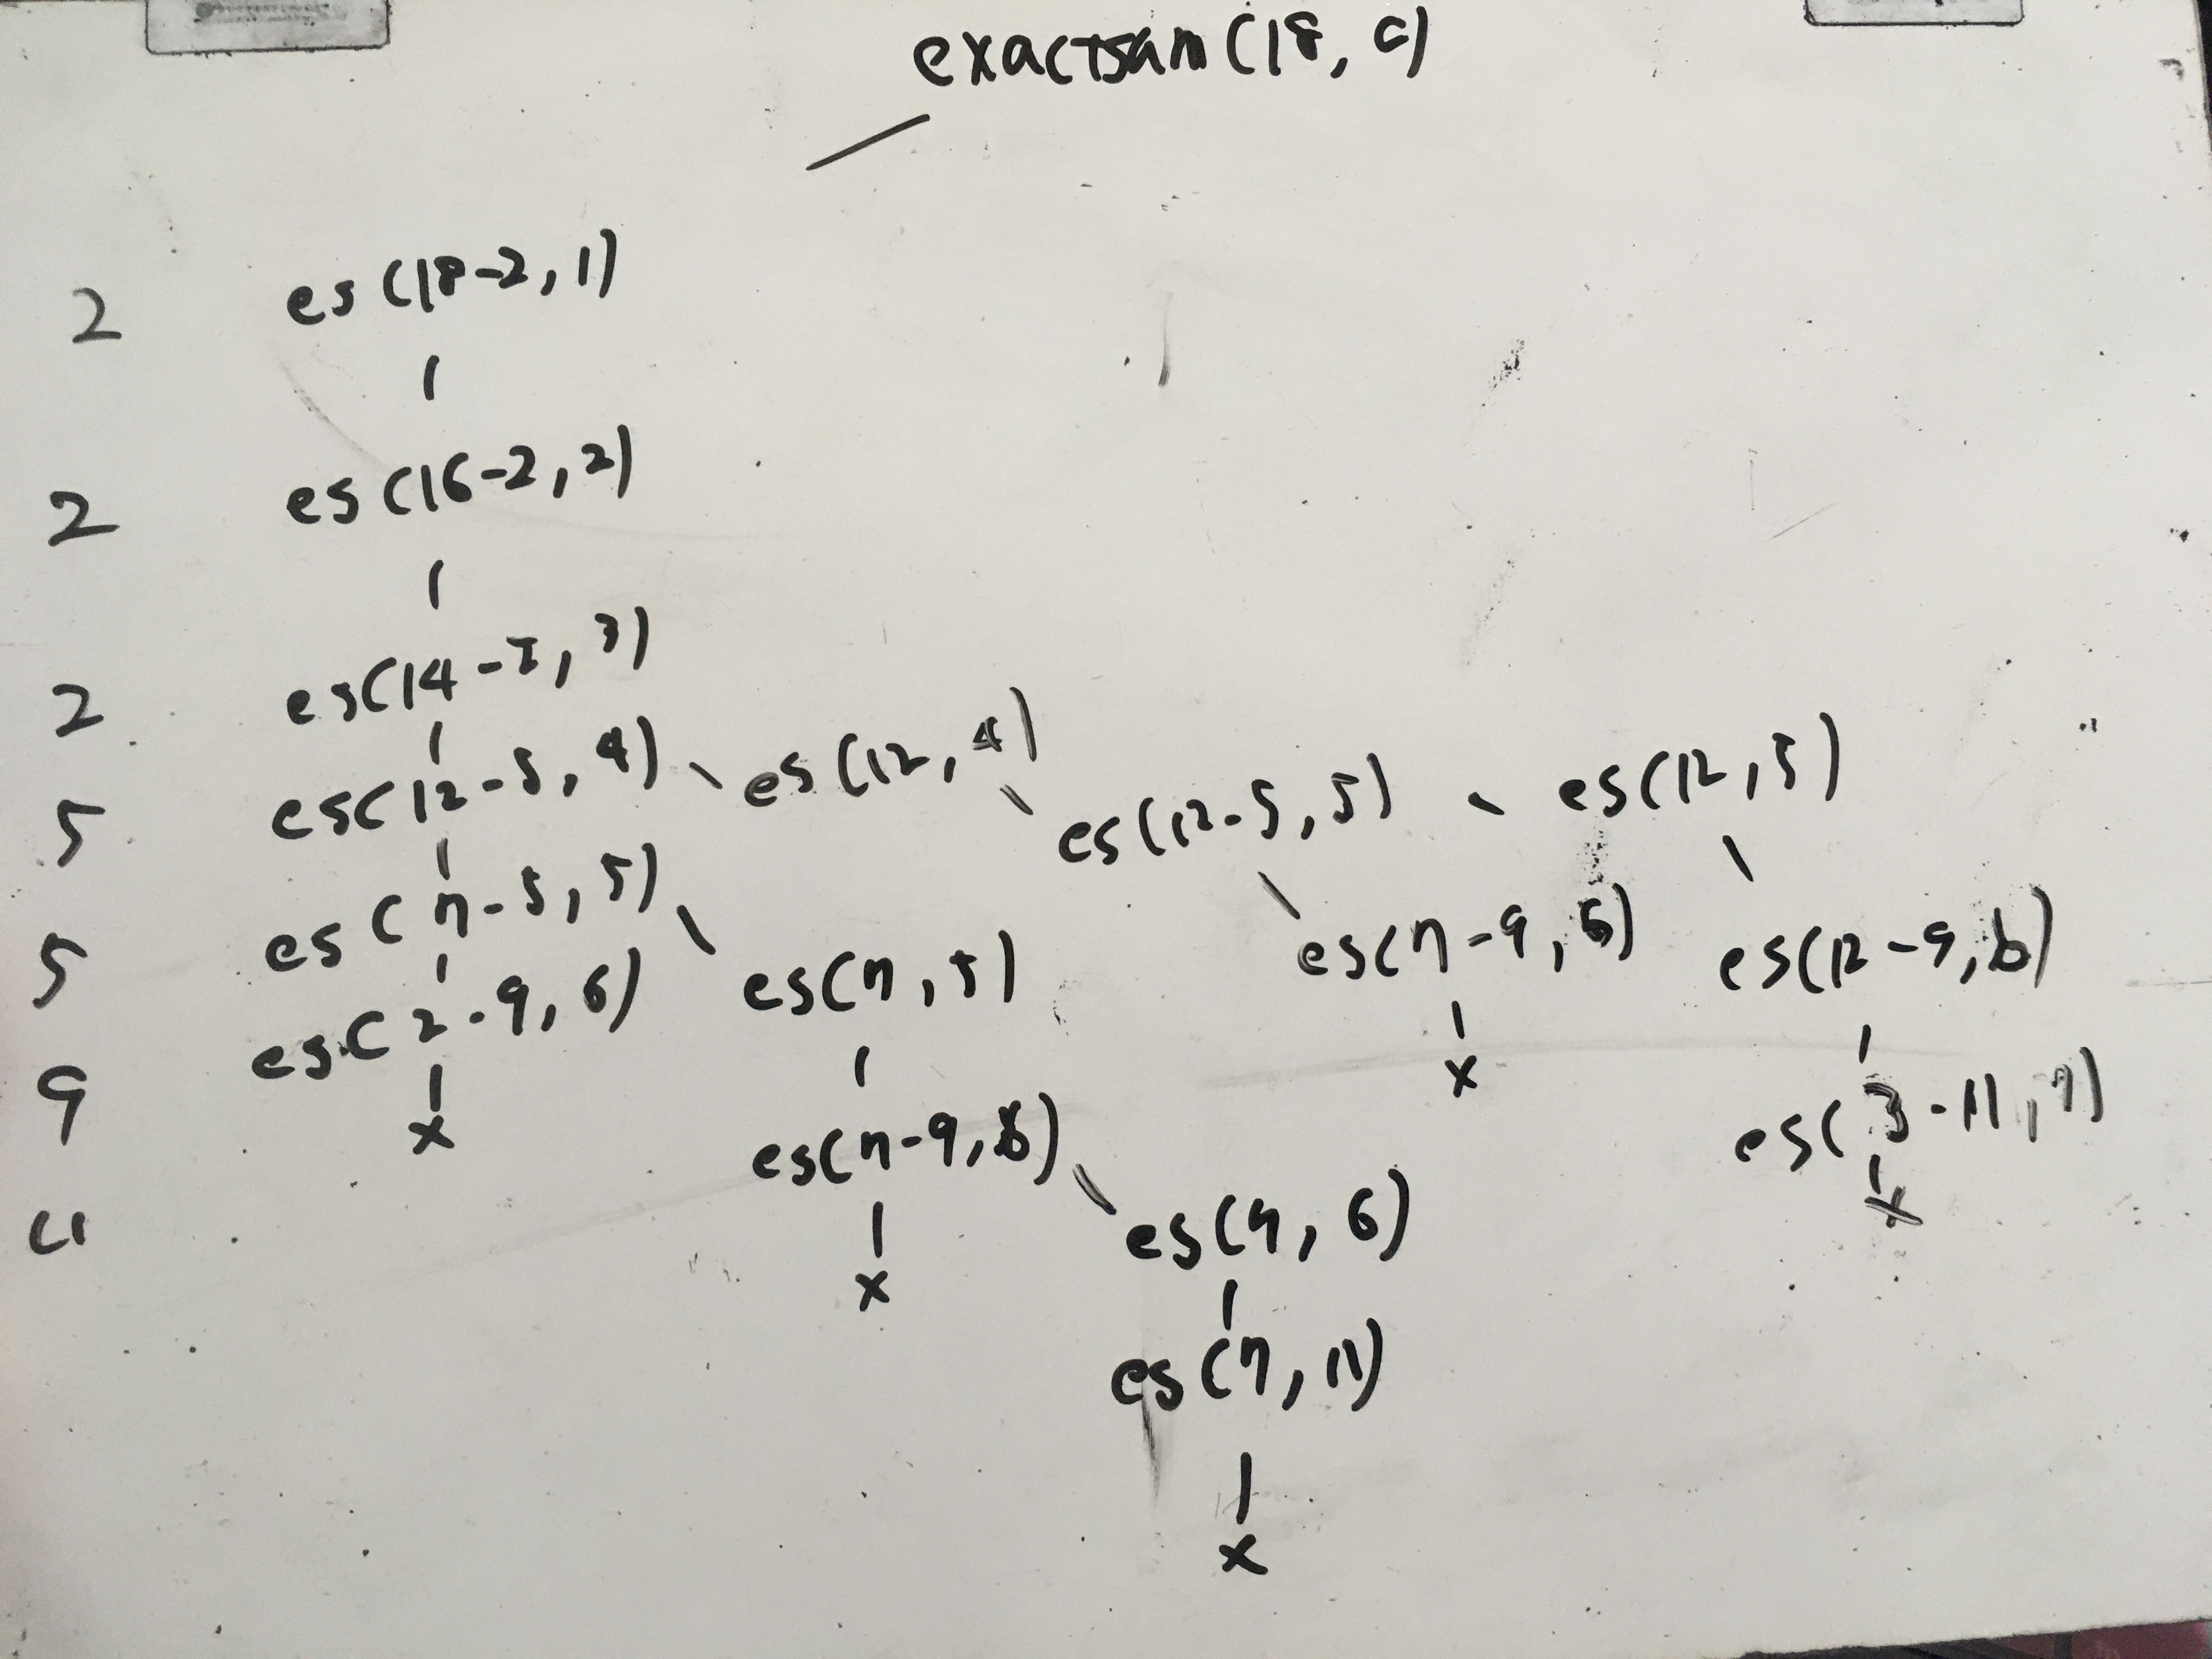 exactsum(18, 0)
2 es(18-2, 1)
2 es(16-2, 2)
2 es(14-2, 3)
5 es(12-5, 4) es(12, 4) es(12-5, 5) es(12, 5)
5 es(7-5, 5) es(7, 5) es(7-9, 6) es(12-9, 6)
9 es(2-9, 6) x es(3-11, 7)
x es(7-9, 6) x
11 x es(7, 6)
es(7, 11)
x